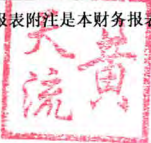 报表附注是本财务报表
黄
天
流